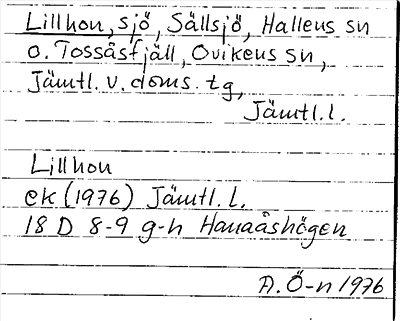 Lillhon, sjö, Sällsjö, Hallens sn
o. Tossåsfjäll, Ovikens sn,
Jämtl. v. doms. tg,
Jämtl. l.
Lillhon
ek (1976) Jämtl. l.
18 D 8-9 g-h Hanaåshögen
A. Ö-n 1976